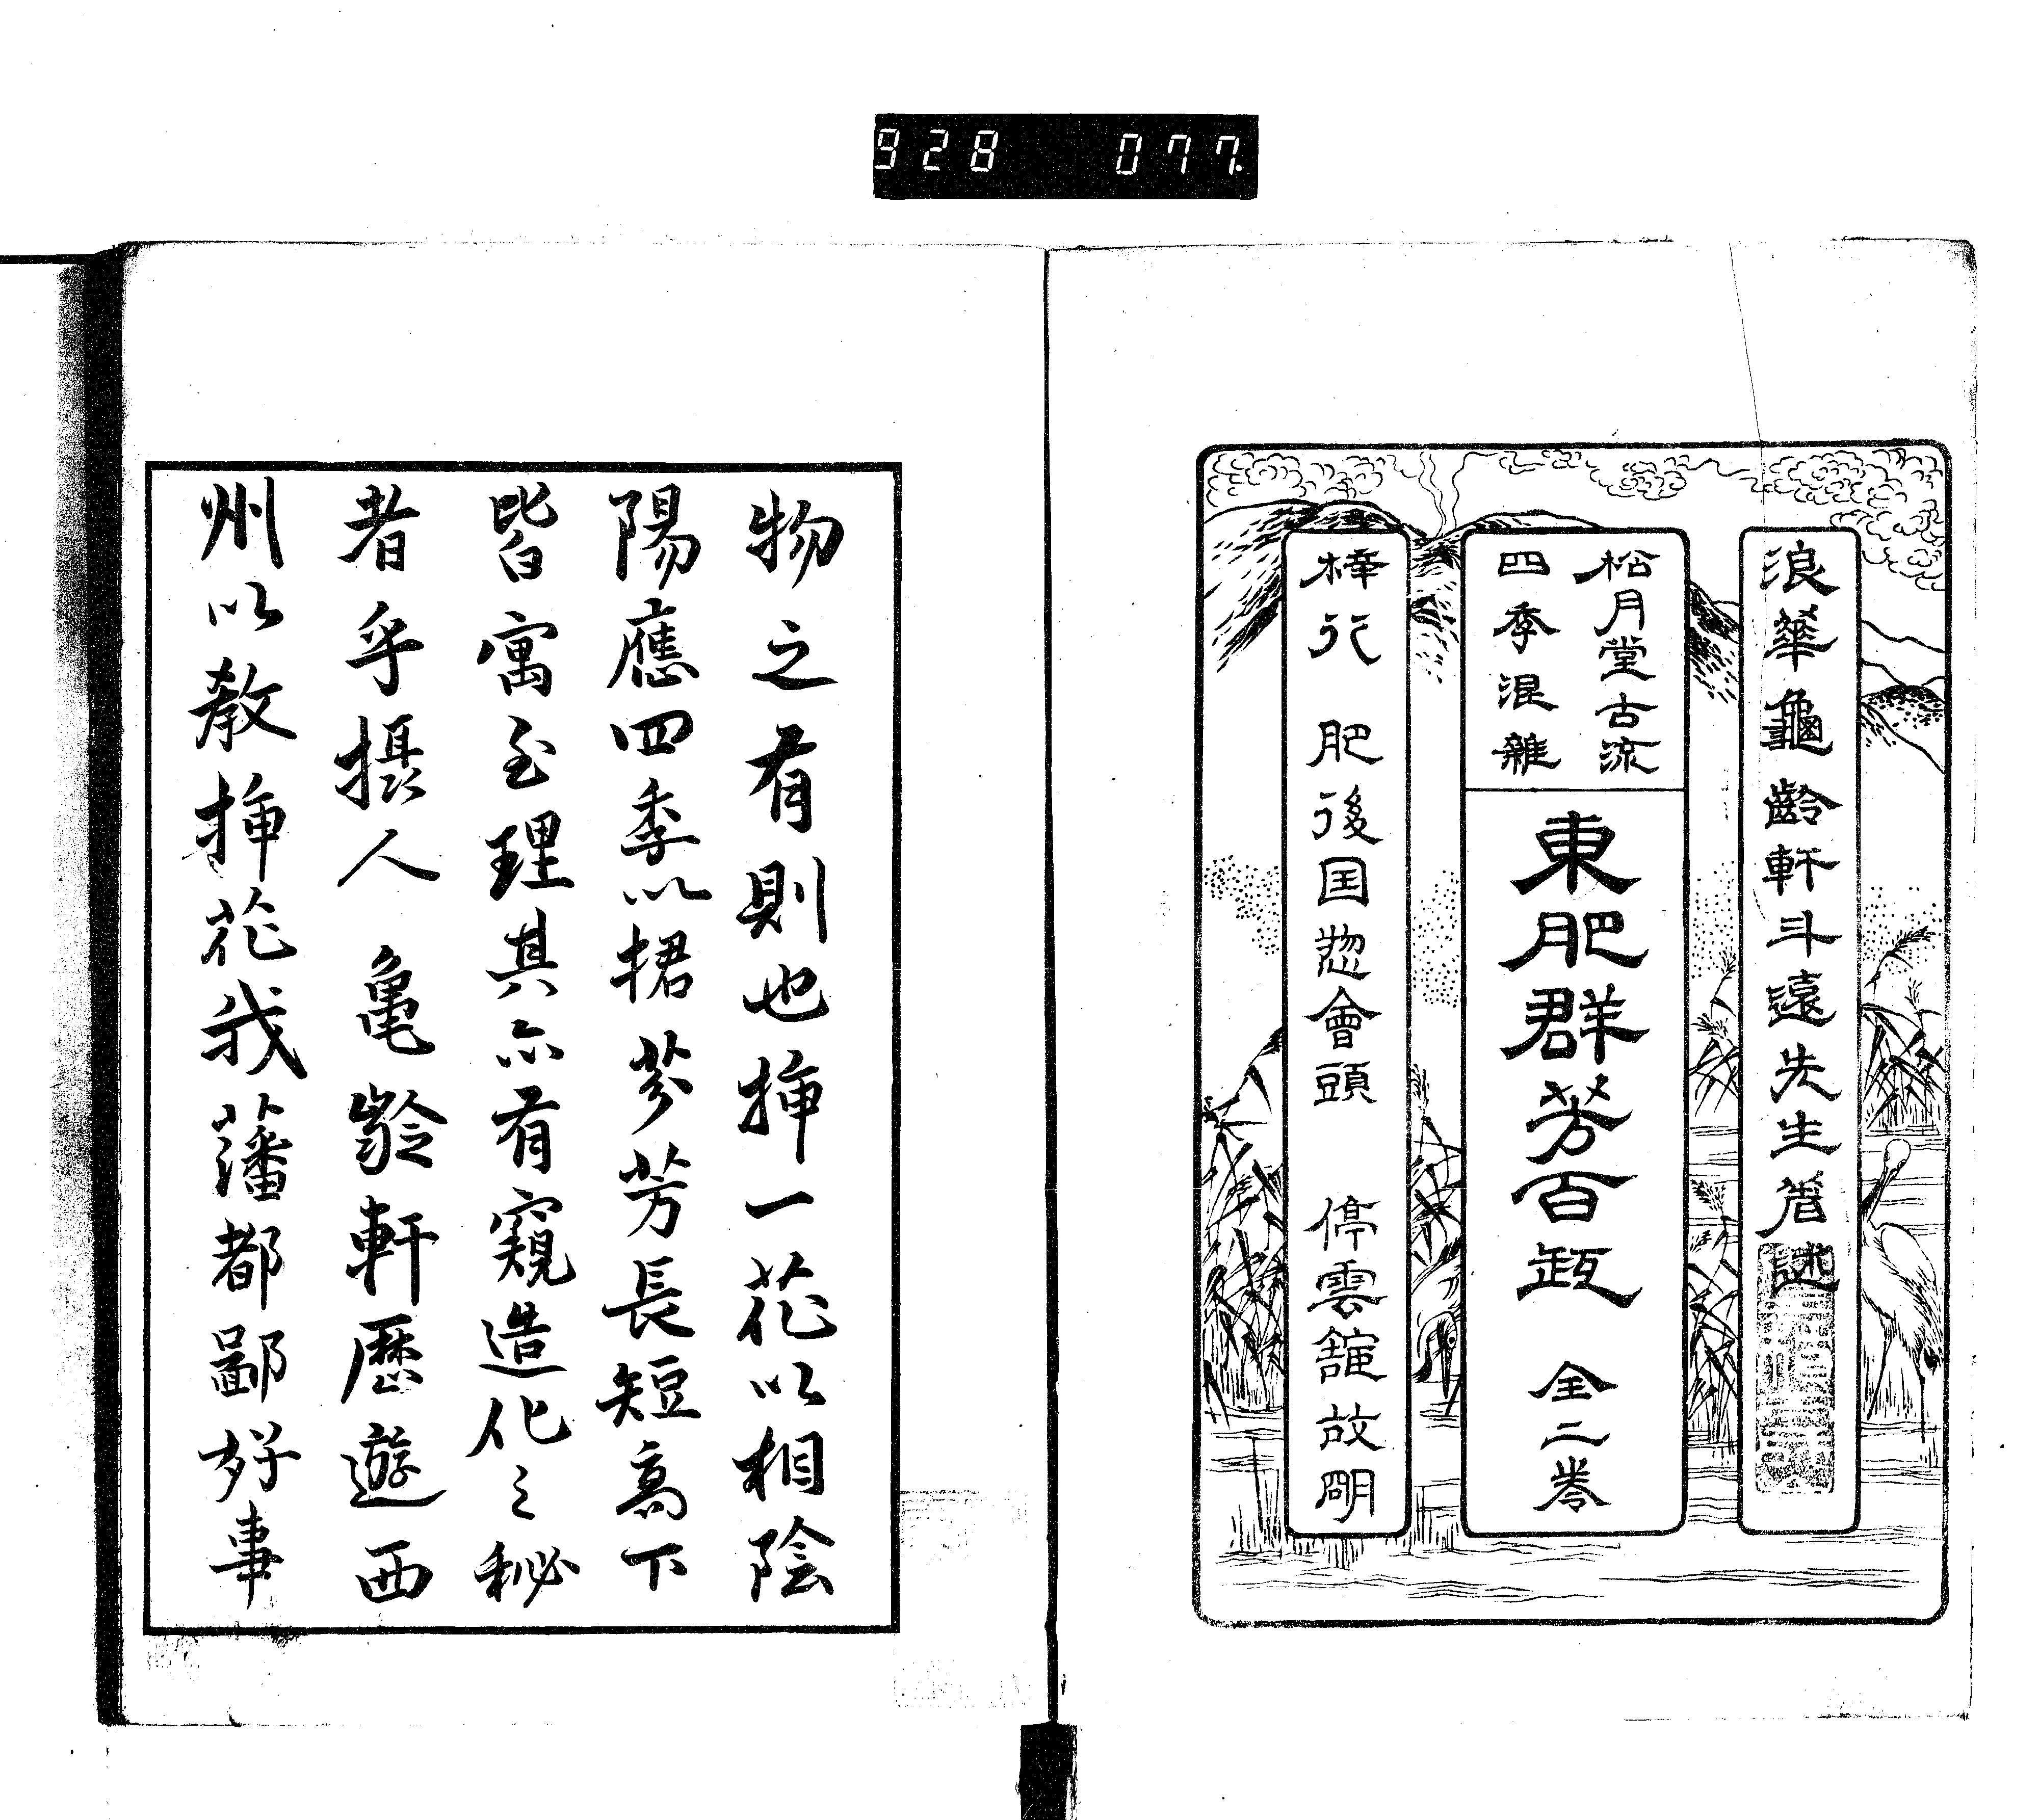 928 077
浪華龜齡軒斗遠先生著述
松月堂古流
四季混雜
東肥群芳百瓶 全二卷
梓行 肥後国惣會頭 停雲舘故明
物之有則也挿一花以相陰
陽應四季以捃芬芳長短高下
皆寓至理其亦有窺造化之秘
者乎摂人 亀齡軒歷遊西
州以教挿花我藩都鄙好事